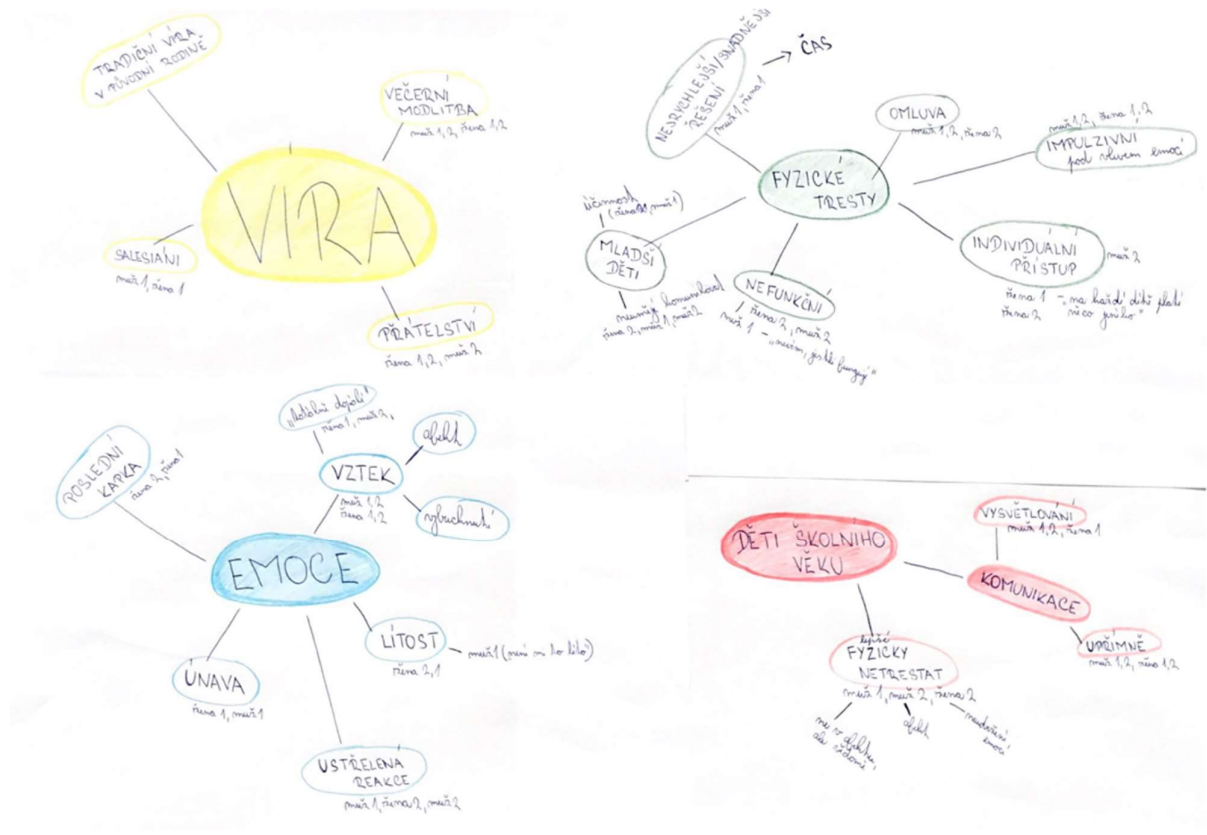 TRADIČNÍ VÍRA
V PŮVODNÍ RODINĚ
VEČERNÍ
MODLITBA
muž 1,2, žena 1,2
VÍRA
SALESIÁNI
muž 1, žena 1
PŘÁTELSTVÍ
žena 1,2, muž 2
NEJRYCHLEJŠÍ/SNADNĚJŠÍ
ŘEŠENÍ
muž 1, žena 1
ČAS
OMLUVA
muž 1,2, žena 2
muž 1,2, žena 1,2
IMPULZIVNÍ
pod vlivem emocí
FYZICKÉ
TRESTY
účinnost
MLADŠÍ
DĚTI
žena 2, muž 1, muž 2
NEFUNKČNÍ
žena 2, muž 2
muž 1 - „nevím, jestli fungují"
INDIVIDUÁLNÍ
PŘÍSTUP
muž 2
žena 1 - „na každé dítě platí
žena 2 něco jiného"
POSLEDNÍ
KAPKA
žena 2, žena 1
žena 1, muž 2,
VZTEK
muž 1,2
žena 1,2
afekt
vybuchnutí
EMOCE
LÍTOST
žena 2,1
muž 1 (není mi ho líto)
ÚNAVA
žena 1, muž 1
USTŘELENÁ
REAKCE
muž 1, žena 2, muž 2
DĚTI ŠKOLNÍHO
VĚKU
VYSVĚTLOVÁNÍ
muž 1,2, žena 1
KOMUNIKACE
UPŘÍMNĚ
muž 1,2, žena 1,2
lepší
FYZICKY
NETRESTAT
muž 1, muž 2, žena 2
ne v afektu,
ale vědomě
afekt
emocí